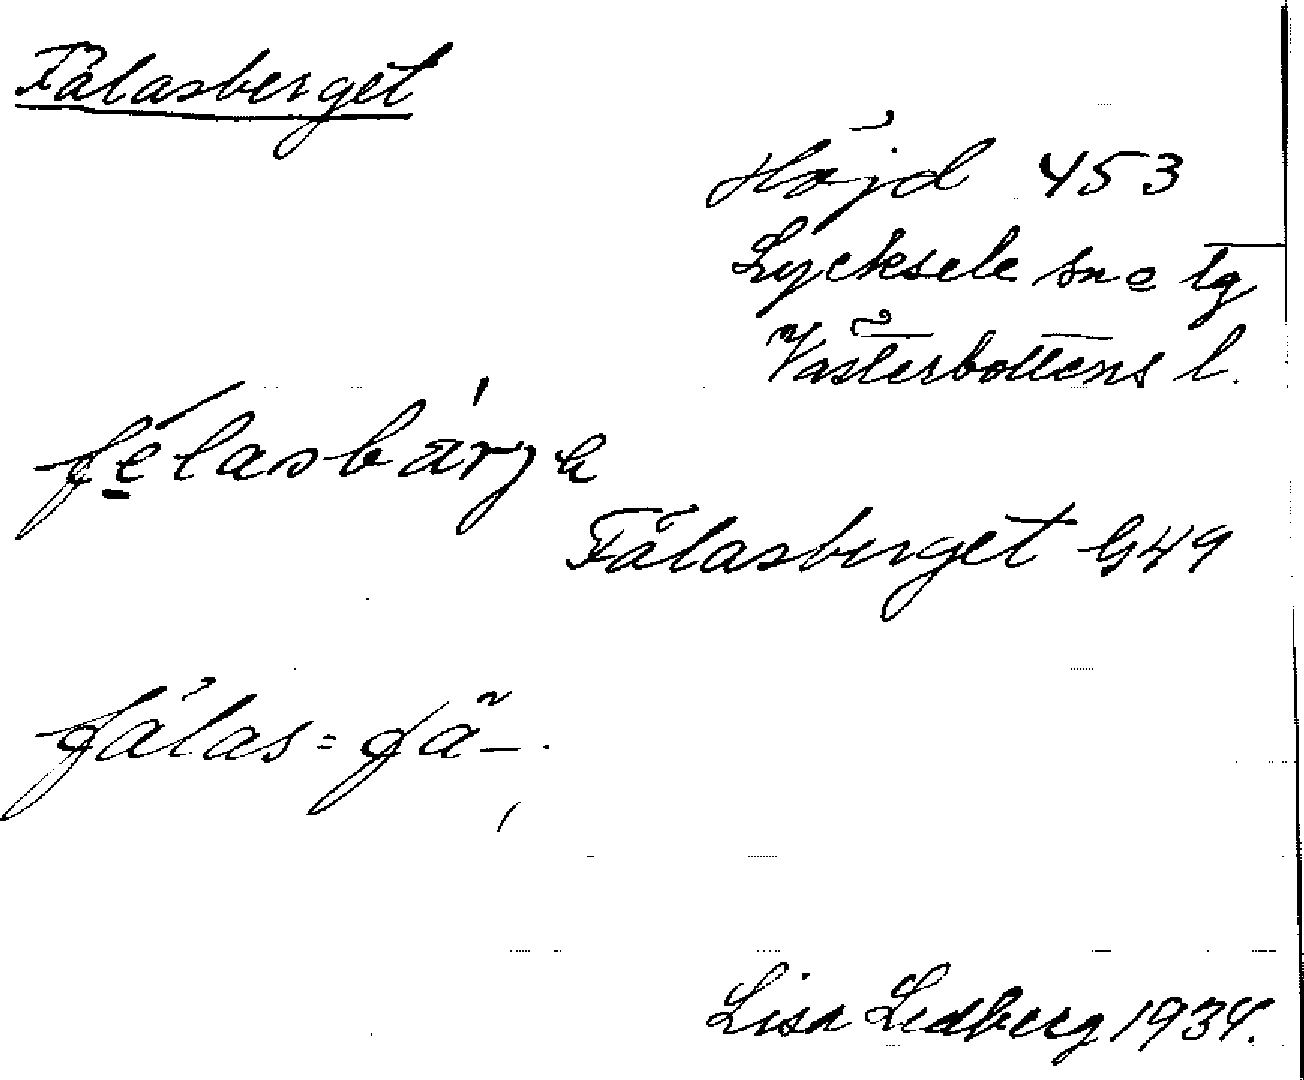 Fälasberget
Höjd 453
Lycksele sn o tg
Västerbottens l.
félasbárje
Fälasberget G49
fälas = fä-.
Lisa Lidberg 1934.